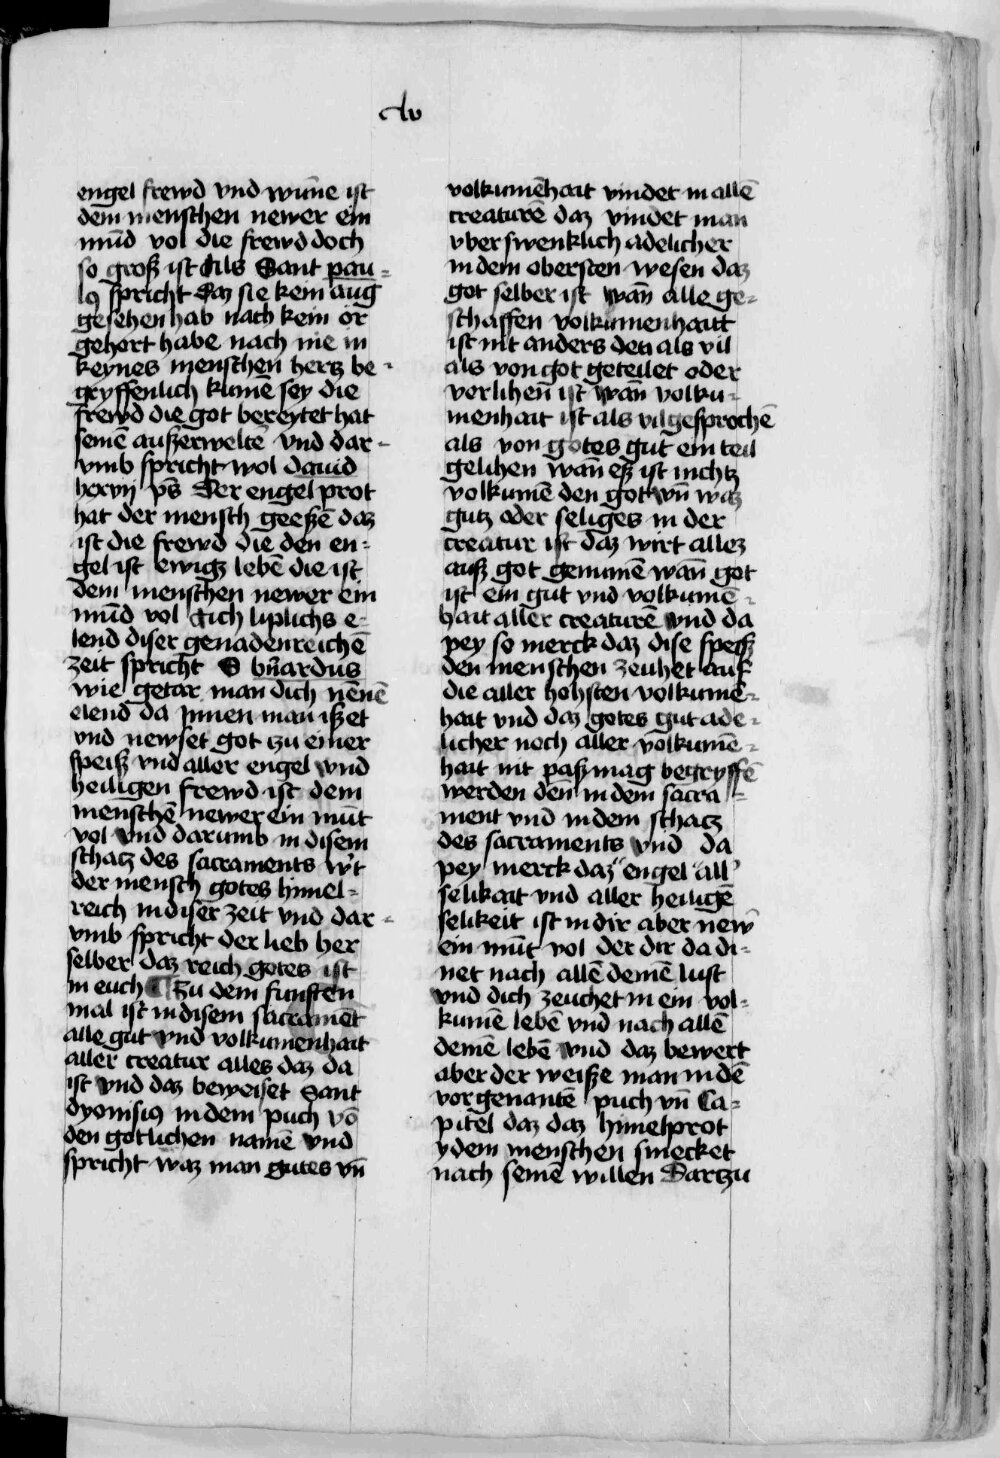 engel frewd vnd wūne ist
dem menschen newer ein
mūd vol die frewd doch
so groß ist Als Sant pau-
lꝯ spricht Daz sie kein aug
gesehen hab nach kein or
gehort habe nach nie in
keynes menschen hertz be-
gryffenlich kumē sey die
frewd die got bereytet hat
seinē außerwelte vnd dar-
vmb spricht wol dauid
lxxvij ps̄ Der engel prot
hat der mensch geeßē daz
ist die frewd die den en-
gel ist ewigs lebē die ist
dem menschen newer ein
mūd vol Sich liplichs e-
lend diser genadenreichē
zeit spricht S bn̄ardus
wie getar man dich nēnē
elend da Innen man ißet
vnd newset got tzu einer
speiß vnd aller engel vnd
heiligen frewd ist dem
menschē newer ein mūt
vol vnd darumb in disem
schatz des sacraments wꝰt
der mensch gotes himel-
reich in diser zeit vnd dar-
vmb spricht der lieb her
selber daz reich gotes ist
in euch ¶ Zu dem funften
mal ist in disem sacramēt
alle gut vnd volkumenhait
aller creatur alles daz da
ist vnd daz beweiset Sant
dyonisiꝯ in dem puch vō
den gotlichen namē vnd
spricht waz man gutes vn̄
volkumēhait vindet in allē
creaturē daz vindet man
vberswenklich adelicher
in dem obersten wesen daz
got selber ist wān alle ge-
schaffen volkumenhaitt
ist nit anders den als vil
als von got geteilet oder
verlihen̄ ist wān volku-
menhait ist als vil gesprochē
als von gotes gut ein teil
gelihen wān eß ist nichtz
volkumē den got vn̄ waz
gutz oder seliges in der
creatur ist daz wirt allez
auß got genumē wān got
ist ein gut vnd volkumē-
hait aller creaturē vnd da
pey so merck daz dise speiß
den menschen zeuhet auf
die aller hohsten volkumē-
hait vnd daz gotes gut ade-
licher noch aller volkumē-
hait nit paß mag begryffē
werden den̄ in dem sacra-
ment vnd in dem schatz
des sacraments vnd da
pey merck daz engel all
selikait vnd aller heiligē
selikeit ist in dir aber new̄
ein mūt vol der dir da di-
net nach allē deinē lust
vnd dich zeuchet in ein vol-
kumē lebē vnd nach allē
deinē lebē vnd daz bewert
aber der weiße man in dē
vorgenantē puch vn̄ Ca-
pitel daz daz himelprot
ydem menschen smecket
nach seinē willen Dartzu